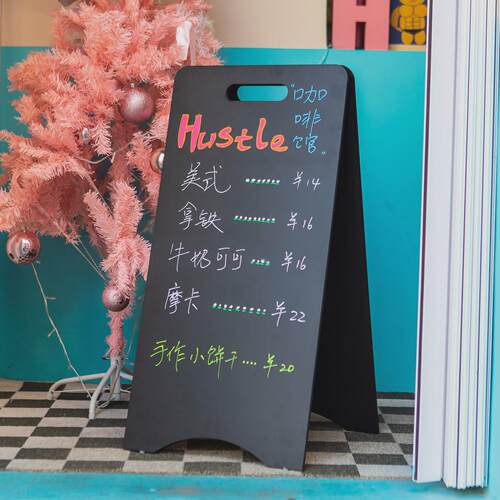 Hustle "咖啡馆"
美式 ...... ¥14
拿铁 ......... ¥16
牛奶可可 .... ¥16
摩卡 .......... ¥22
手作小饼干 .... ¥20